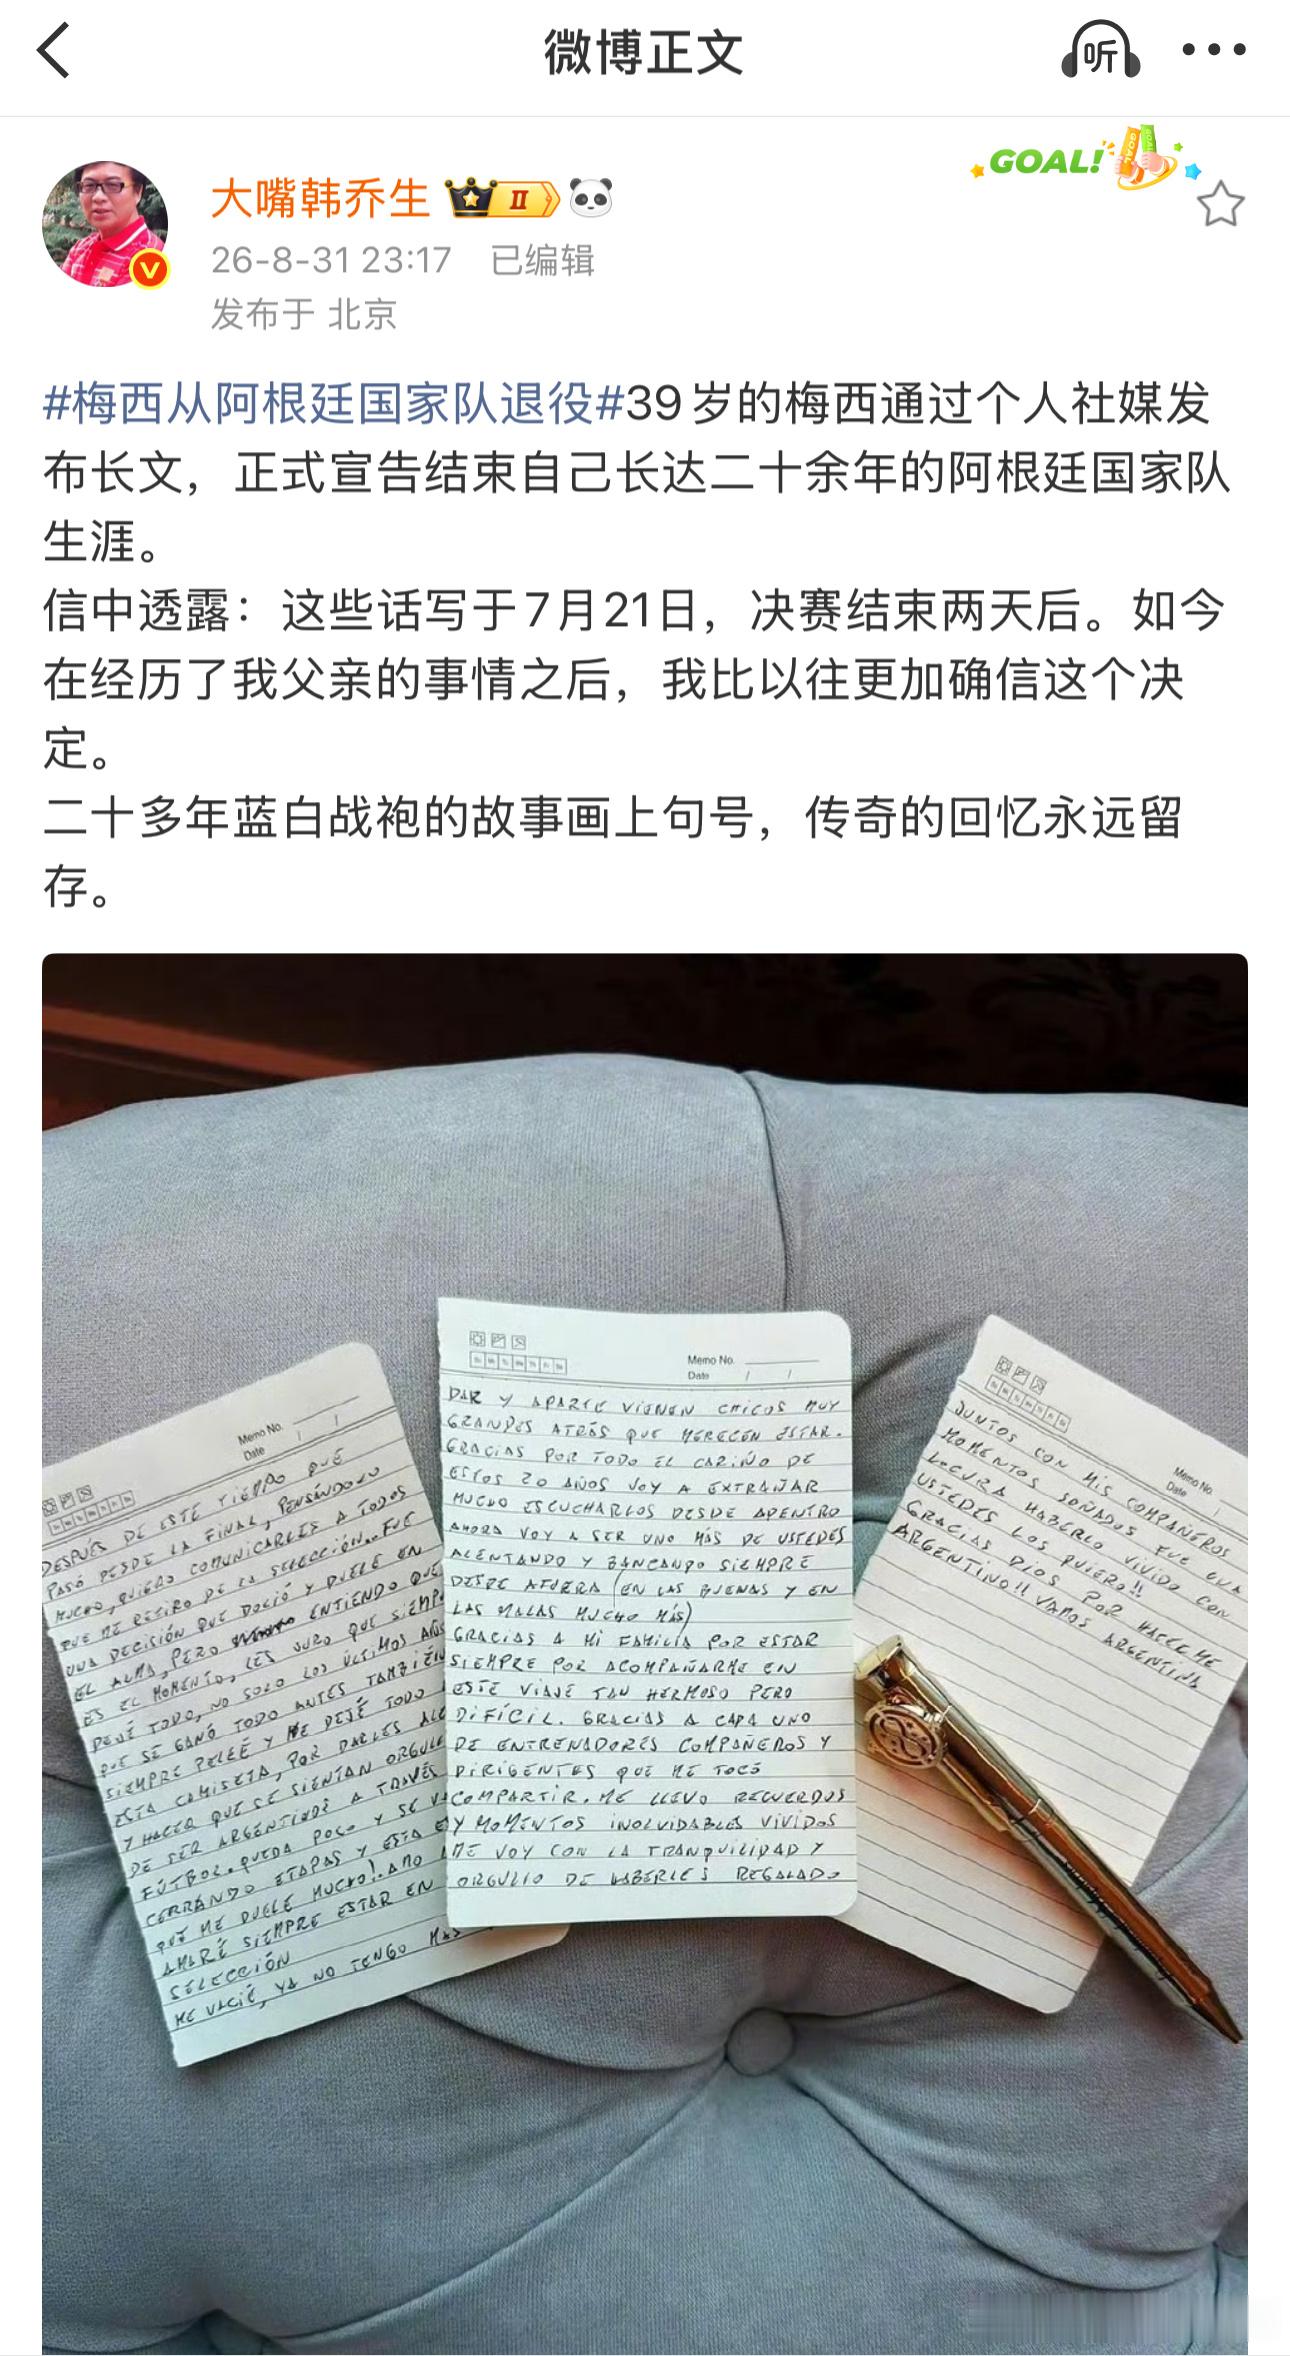 微博正文
听
GOAL!
大嘴韩乔生
II
26-8-31 23:17 已编辑
发布于 北京
#梅西从阿根廷国家队退役#39岁的梅西通过个人社媒发
布长文，正式宣告结束自己长达二十余年的阿根廷国家队
生涯。
信中透露：这些话写于7月21日，决赛结束两天后。如今
在经历了我父亲的事情之后，我比以往更加确信这个决
定。
二十多年蓝白战袍的故事画上句号，传奇的回忆永远留
存。
Memo No.
Date / /
DESPUÉS DE ESTE TIEMPO QUE
PASÓ DESDE LA FINAL, PENSÁNDOLO
MUCHO, QUIERO COMUNICARLES A TODOS
QUE ME RETIRO DE LA SELECCIÓN.. FUE
UNA DECISIÓN QUE DOLIÓ Y DUELE EN
EL ALMA, PERO ENTIENDO QUE
ES EL MOMENTO, LES JURO QUE SIEMP
DEJÉ TODO, NO SOLO LOS ÚLTIMOS AÑOS
QUE SE GANÓ TODO ANTES TAMBIÉN
SIEMPRE PELEÉ Y ME DEJÉ TODO
ESTA CAMISETA, POR DARLES ALE
Y HACER QUE SE SIENTAN ORGULL
DE SER ARGENTINOS A TRAVÉS
FÚTBOL. QUEDA POCO Y SE V
CERRANDO ETAPAS Y ESTA E
QUE ME DUELE MUCHO!. AMO
AMARÉ SIEMPRE ESTAR EN
SELECCIÓN
ME VACIÉ, YA NO TENGO MAS
Memo No.
Date / /
DAR Y APARTE VIENEN CHICOS MUY
GRANDES ATRÁS QUE MERECEN ESTAR.
GRACIAS POR TODO EL CARIÑO DE
ESTOS 20 AÑOS VOY A EXTRAÑAR
MUCHO ESCUCHARLOS DESDE ADENTRO
AHORA VOY A SER UNO MÁS DE USTEDES
ALENTANDO Y BANCANDO SIEMPRE
DESDE AFUERA (EN LAS BUENAS Y EN
LAS MALAS MUCHO MÁS)
GRACIAS A MI FAMILIA POR ESTAR
SIEMPRE POR ACOMPAÑARME EN
ESTE VIAJE TAN HERMOSO PERO
DIFÍCIL. GRACIAS A CADA UNO
DE ENTRENADORES COMPAÑEROS Y
DIRIGENTES QUE ME TOCÓ
COMPARTIR. ME LLEVO RECUERDOS
Y MOMENTOS INOLVIDABLES VIVIDOS
ME VOY CON LA TRANQUILIDAD Y
ORGULLO DE HABERLES REGALADO
Memo No.
Date /
JUNTOS CON MIS COMPAÑEROS
MOMENTOS SOÑADOS FUE UNA
LOCURA HABERLO VIVIDO CON
USTEDES LOS QUIERO!!
GRACIAS DIOS POR HACERME
ARGENTINO!! VAMOS ARGENTINA